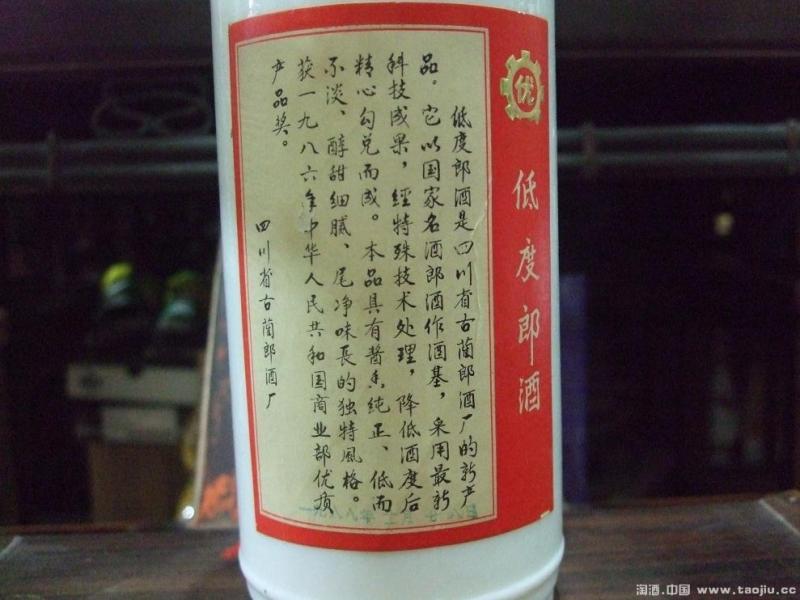 优
低度郎酒
低度郎酒是四川省古蔺郎酒厂的新产
品。它以国家名酒郎酒作酒基，采用最新
科技成果，经特殊技术处理，降低酒度后
精心勾兑而成。本品具有酱香纯正、低而
不淡、醇甜细腻、尾净味長的独特風格。
获一九八六年中华人民共和国商业部优质
产品奖。
四川省古蔺郎酒厂
一九八八年
淘酒.中国 www.taojiu.cc